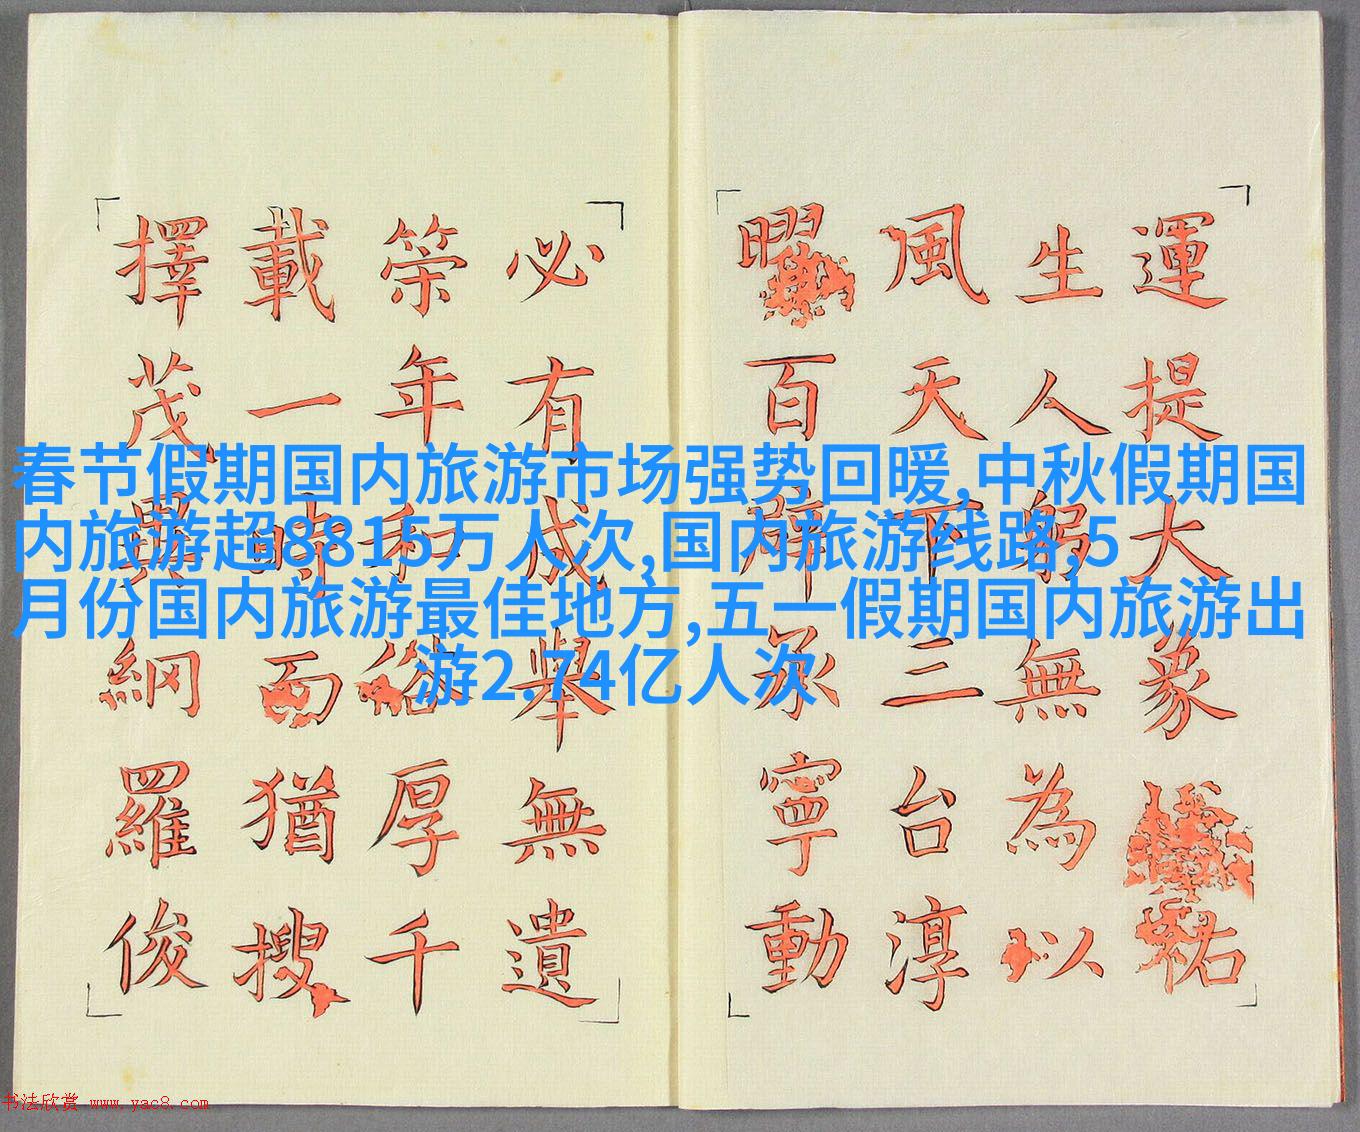 春节假期国内旅游市场强势回暖,中秋假期国
内旅游超8815万人次,国内旅游线路,5
月份国内旅游最佳地方,五一假期国内旅游出
游2.74亿人次
運提大象祐
生人躬無為以
風天下三台淳
曜百辟承寧動
必有成舉無遺
筞年和俗厚千
載一時而猶搜
擇茂異網羅俊
书法欣赏 www.yac8.com